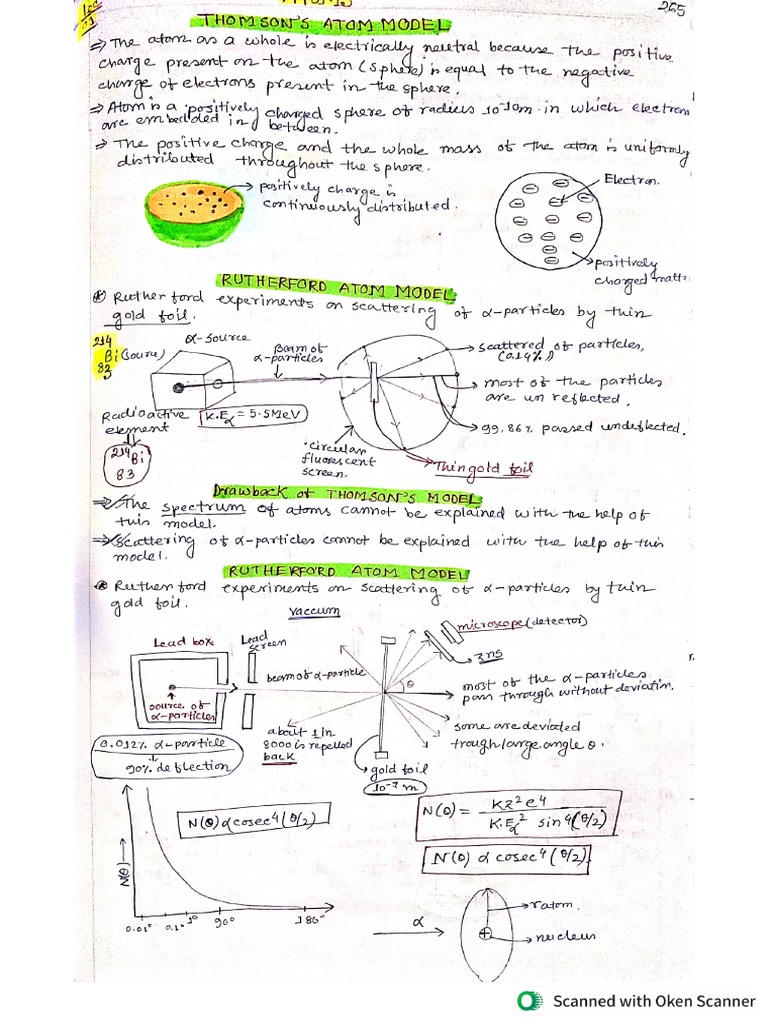 265
THOMSON'S ATOM MODEL
⇒ The atom as a whole is electrically neutral because the positive
charge present on the atom (sphere) is equal to the negative
charge of electrons present in the sphere.
⇒ Atom is a positively charged sphere of radius 10⁻¹⁰m in which electron
are embedded in between.
⇒ The positive charge and the whole mass of the atom is uniformly
distributed throughout the sphere.
positively charge is
continuously distributed.
Electron.
positively
charged matt
RUTHERFORD ATOM MODEL
Rutherford experiments on scattering of α-particles by thin
gold foil.
214
Bi (Source)
83
α-source
Beam of
α-particles
scattered of particles,
(0.14%)
most of the particles
are un reflected.
99.86% passed undeflected.
Radioactive
element
K.Eα = 5.5MeV
214 Bi
83
circular
fluorescent
screen.
Thin gold foil
Drawback of THOMSON'S MODEL
⇒ The spectrum of atoms cannot be explained with the help of
this model.
⇒ Scattering of α-particles cannot be explained with the help of this
model.
RUTHERFORD ATOM MODEL
Rutherford experiments on scattering of α-particles by thin
gold foil.
vaccum
microscope (detector)
Lead box
Lead
screen
beam of α-particle
θ
zns
most of the α-particles
pass through without deviatin.
source of
α-particles
about 1 in
8000 is repelled
back
some are deviated
trough large angle θ.
0.012% α-particle
↓
90% deflection
gold foil
10⁻⁷ m
N(θ) α cosec⁴(θ/2)
N(θ) = KZ²e⁴ / K.Eα² sin⁴(θ/2)
N(θ) α cosec⁴(θ/2)
N(θ) →
0.01° 0.1° 1° 90° 180°
α
ratom.
nucleus
Scanned with Oken Scanner